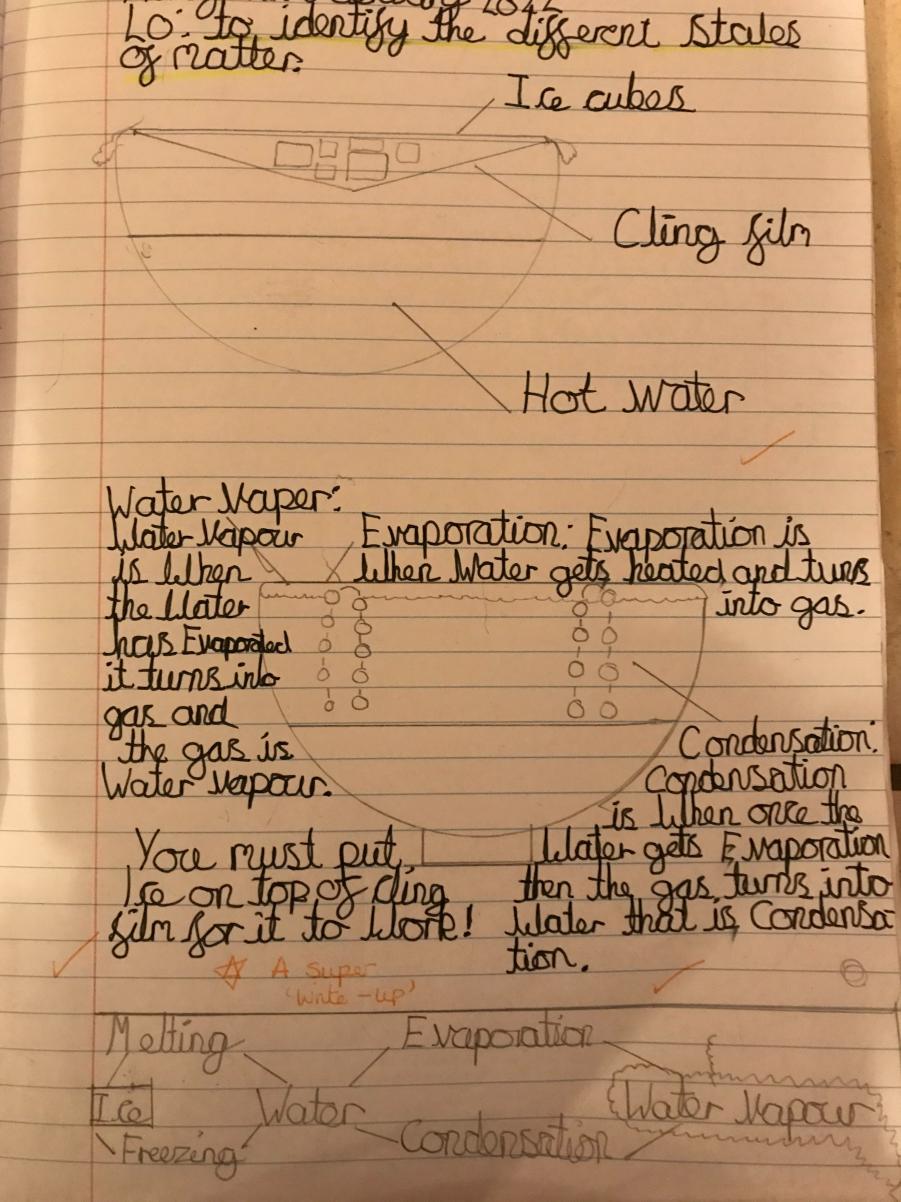 LO: to identify the different States
of matter.
Ice cubes
Cling film
Hot water
Water Vaper:
Water Vapour
is When
the Water
has Evaporated
it turns into
gas and
the gas is
Water Vapour.
Evaporation: Evaporation is
When Water gets heated and turns
into gas.
Condensation:
Condensation
is When once the
Water gets Evaporation
then the gas turns into
Water that is Condensa
tion.
You must put
Ice on top of Cling
film for it to Work!
A super
'write-up'
Melting
Evaporation
Ice
Water
Water Vapour
Freezing
Condensation